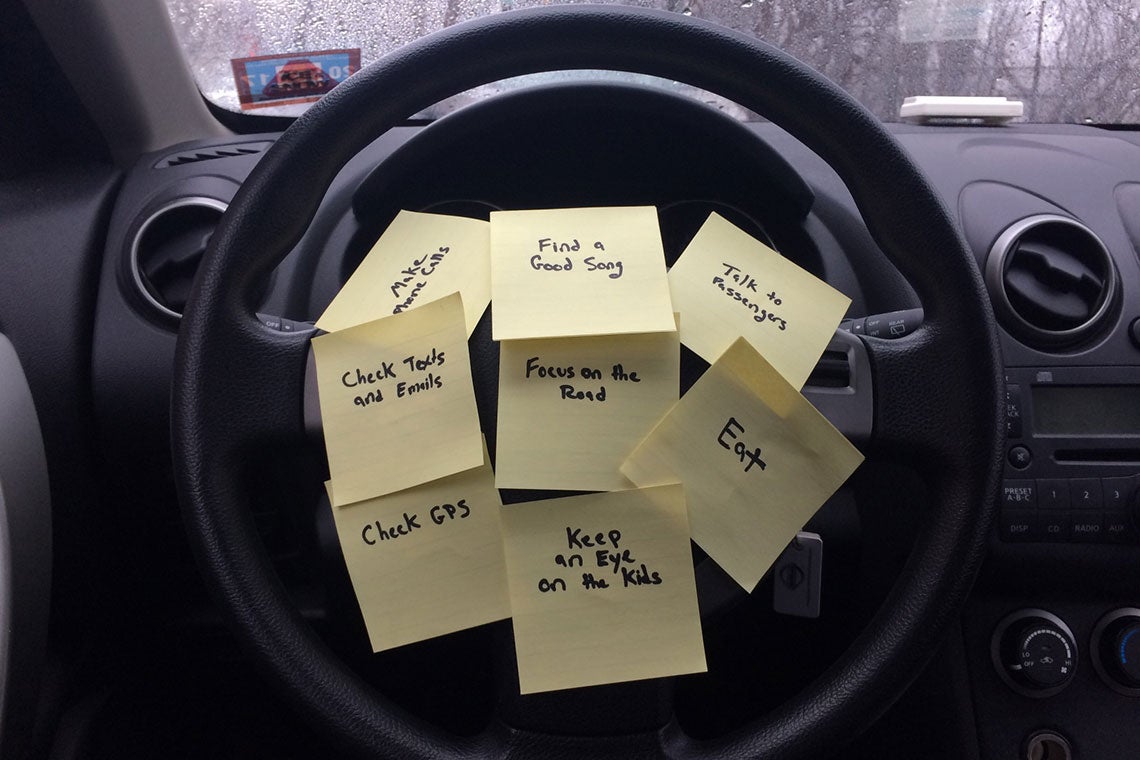 Make
Phone Calls
Find a
Good Song
Talk to
Passengers
Check Texts
and Emails
Focus on the
Road
Eat
Check GPS
Keep
an Eye
on the Kids
OFF
OFF
INT
REAR
PRESET
A·B·C
1
2
3
DISP
CD
RADIO
AUX
LO
OFF
HI